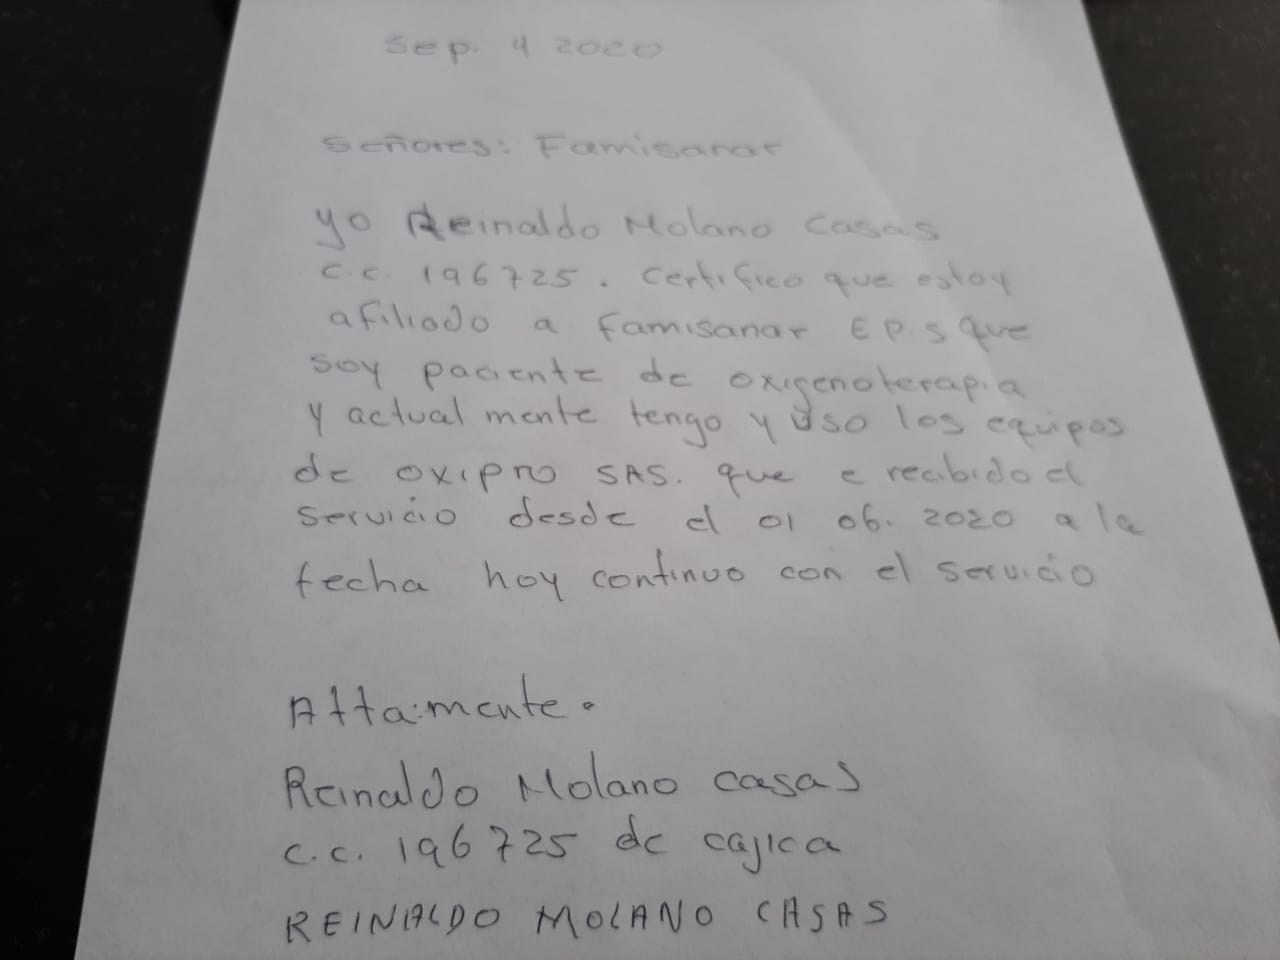 Sep. 4 2020
Señores: Famisanar
yo Reinaldo Molano Casas
c.c. 196725. certifico que estoy
afiliado a famisanar E P.S que
soy paciente de oxigenoterapia
y actual mente tengo y uso los equipos
de oxipro SAS. que e recibido el
servicio desde el 01 06. 2020 a la
fecha hoy continuo con el servicio
Atta:mente.
Reinaldo Molano casas
c.c. 196725 de cajica
REINALDO MOLANO CASAS